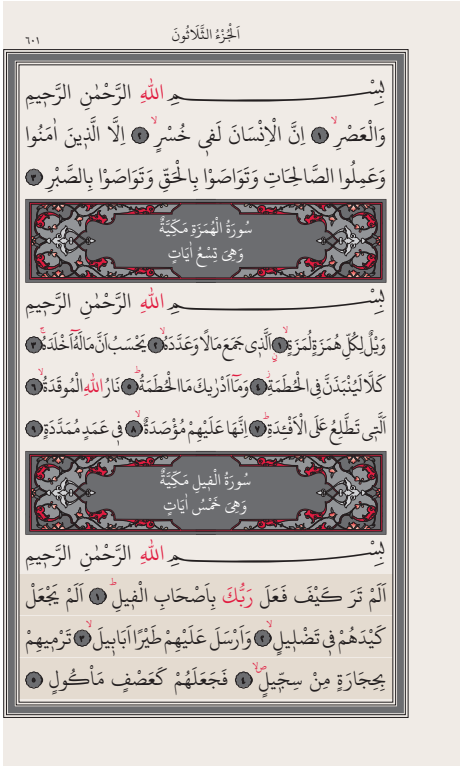 اَلْجُزْءُ الثَّلَاثُونَ
٦٠١
بِسْمِ اللّٰهِ الرَّحْمٰنِ الرَّحٖيمِ
وَالْعَصْرِۙ ﴿١﴾ اِنَّ الْاِنْسَانَ لَفٖى خُسْرٍۙ ﴿٢﴾ اِلَّا الَّذٖينَ اٰمَنُوا
وَعَمِلُوا الصَّالِحَاتِ وَتَوَاصَوْا بِالْحَقِّ وَتَوَاصَوْا بِالصَّبْرِ ﴿٣﴾
سُورَةُ الْهُمَزَةِ مَكِّيَّةٌ
وَهِىَ تِسْعُ اٰيَاتٍ
بِسْمِ اللّٰهِ الرَّحْمٰنِ الرَّحٖيمِ
وَيْلٌ لِكُلِّ هُمَزَةٍ لُمَزَةٍۙ ﴿١﴾ اَلَّذٖى جَمَعَ مَالًا وَعَدَّدَهُۙ ﴿٢﴾ يَحْسَبُ اَنَّ مَالَهُٓ اَخْلَدَهُۚ ﴿٣﴾
كَلَّا لَيُنْبَذَنَّ فِى الْحُطَمَةِۘ ﴿٤﴾ وَمَٓا اَدْرٰيكَ مَا الْحُطَمَةُۜ ﴿٥﴾ نَارُ اللّٰهِ الْمُوقَدَةُۙ ﴿٦﴾
اَلَّتٖى تَطَّلِعُ عَلَى الْاَفْـِٔدَةِۜ ﴿٧﴾ اِنَّهَا عَلَيْهِمْ مُؤْصَدَةٌۙ ﴿٨﴾ فٖى عَمَدٍ مُمَدَّدَةٍ ﴿٩﴾
سُورَةُ الْفٖيلِ مَكِّيَّةٌ
وَهِىَ خَمْسُ اٰيَاتٍ
بِسْمِ اللّٰهِ الرَّحْمٰنِ الرَّحٖيمِ
اَلَمْ تَرَ كَيْفَ فَعَلَ رَبُّكَ بِاَصْحَابِ الْفٖيلِۜ ﴿١﴾ اَلَمْ يَجْعَلْ
كَيْدَهُمْ فٖى تَضْلٖيلٍۙ ﴿٢﴾ وَاَرْسَلَ عَلَيْهِمْ طَيْرًا اَبَابٖيلَۙ ﴿٣﴾ تَرْمٖيهِمْ
بِحِجَارَةٍ مِنْ سِجّٖيلٍۙۖ ﴿٤﴾ فَجَعَلَهُمْ كَعَصْفٍ مَاْكُولٍ ﴿٥﴾